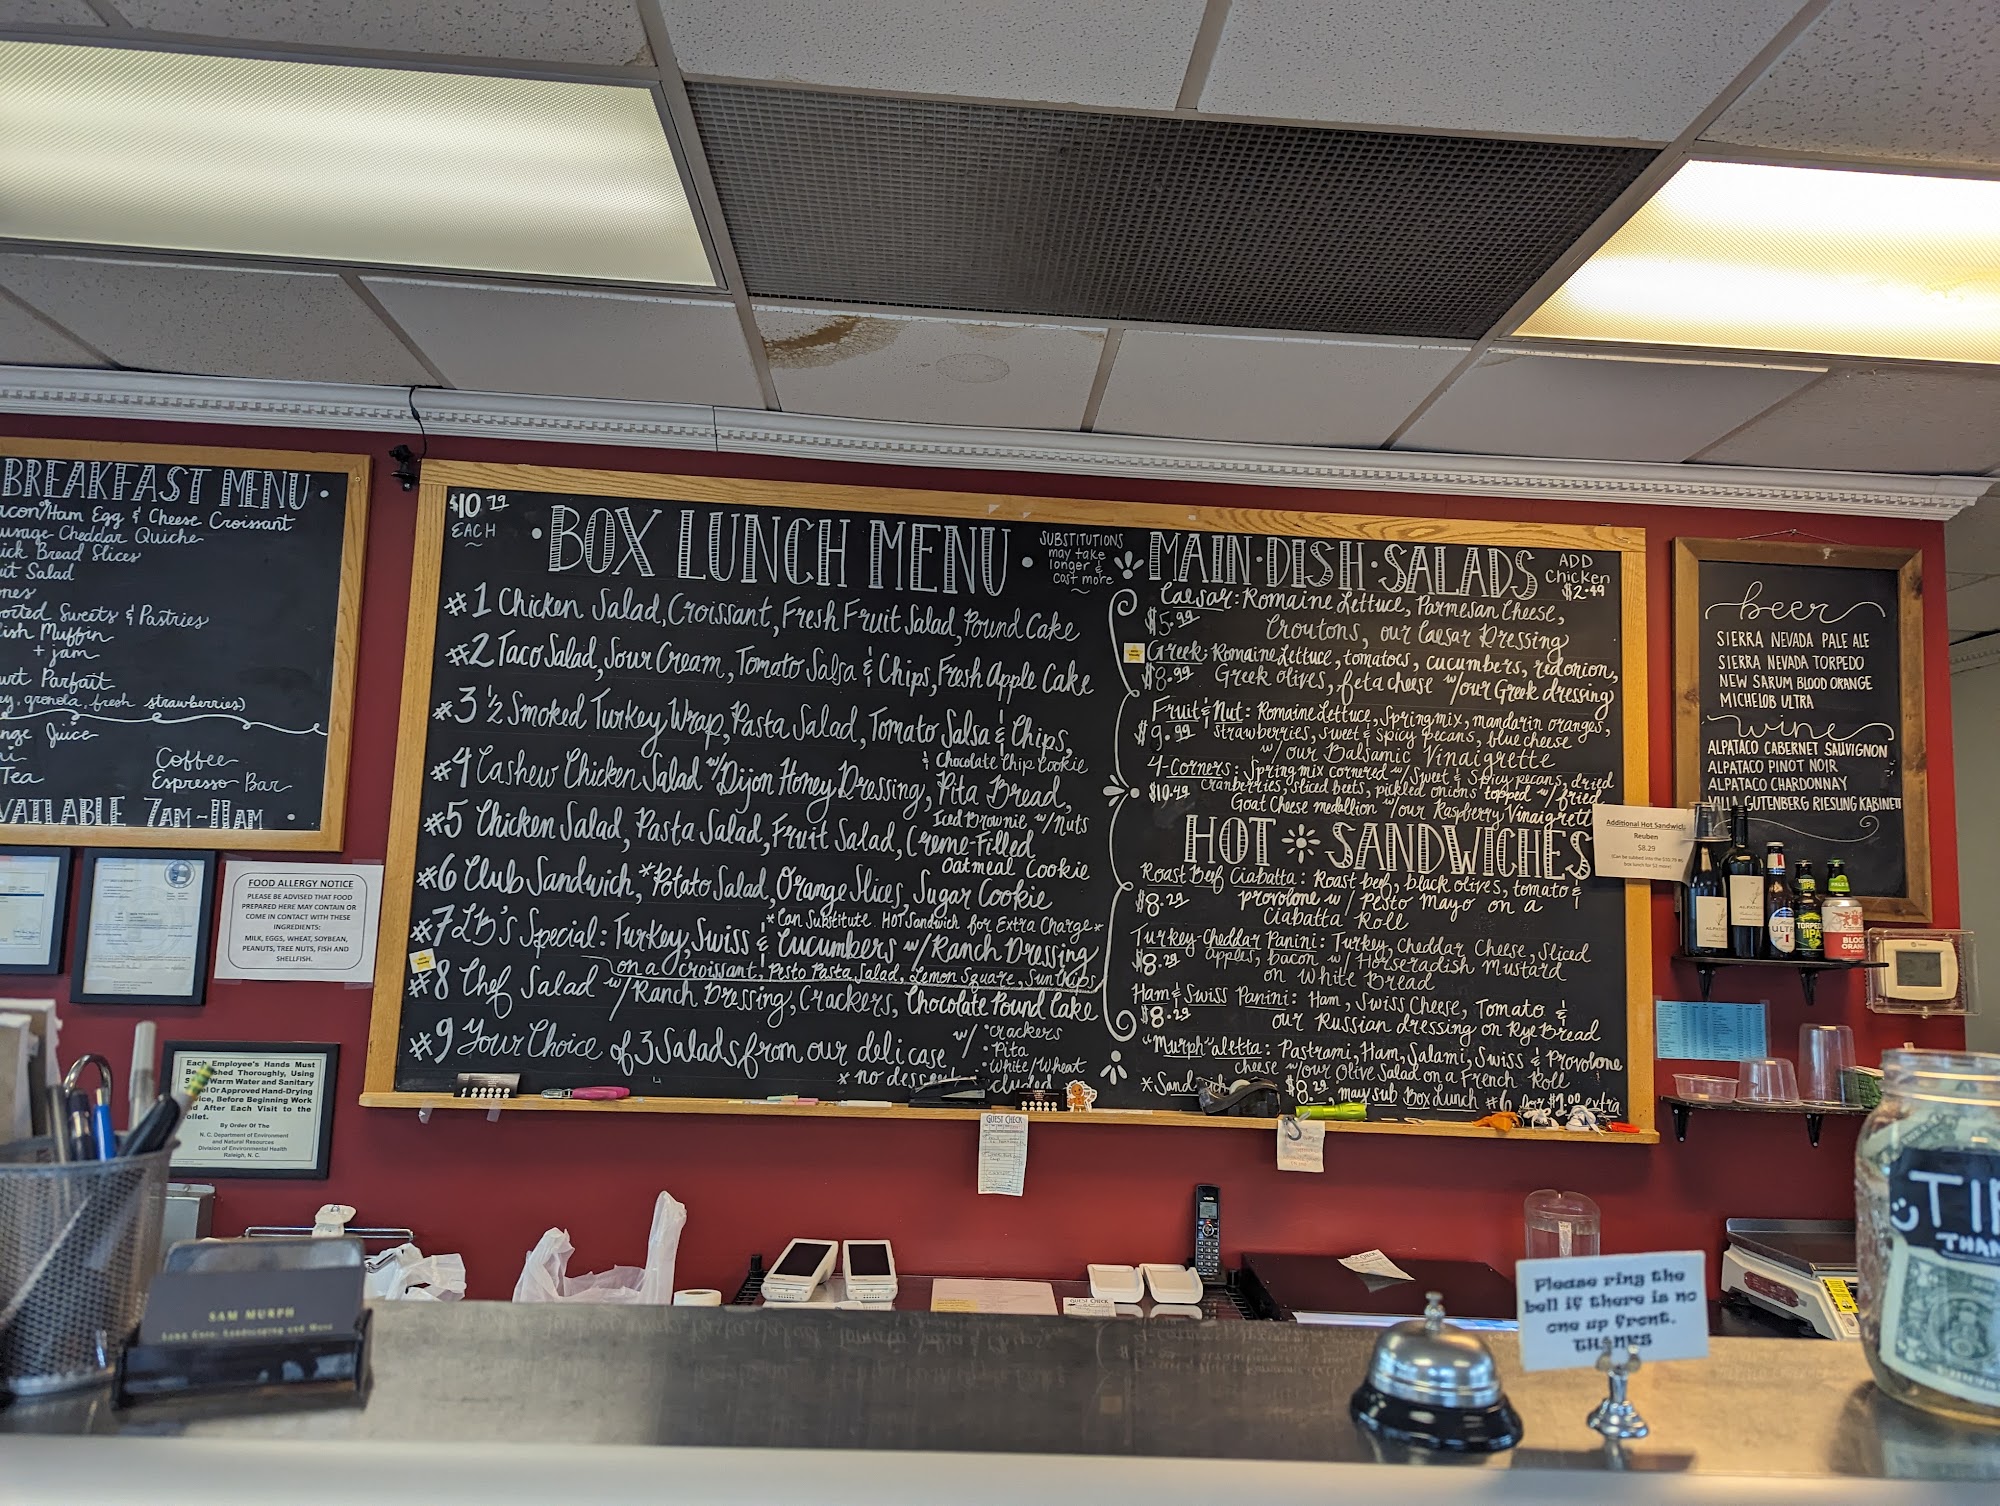 BREAKFAST MENU
Ham Egg & Cheese Croissant
Cheddar Quiche
Bread Slices
Salad
Sweets & Pastries
Muffin
+ jam
Parfait
granola, fresh strawberries)
Juice
Coffee
Tea
Espresso Bar
7AM-11AM
$10.79
EACH
BOX LUNCH MENU
SUBSTITUTIONS
may take
longer &
cost more
#1 Chicken Salad, Croissant, Fresh Fruit Salad, Pound Cake
#2 Taco Salad, Sour Cream, Tomato Salsa & Chips, Fresh Apple Cake
#3 ½ Smoked Turkey Wrap, Pasta Salad, Tomato Salsa & Chips,
& Chocolate Chip Cookie
#4 Cashew Chicken Salad w/ Dijon Honey Dressing, Pita Bread,
Iced Brownie w/Nuts
#5 Chicken Salad, Pasta Salad, Fruit Salad, Creme-Filled
Oatmeal Cookie
#6 Club Sandwich, *Potato Salad, Orange Slices, Sugar Cookie
*Can Substitute HOT Sandwich for Extra Charge*
#7 LB's Special: Turkey, Swiss & Cucumbers w/ Ranch Dressing
on a croissant, Pesto Pasta Salad, Lemon Square, Sun Chips
#8 Chef Salad w/ Ranch Dressing, Crackers, Chocolate Pound Cake
#9 Your Choice of 3 Salads from our deli case w/ *crackers
*Pita
*White/Wheat
* no dessert included
MAIN·DISH·SALADS
ADD
Chicken
$2.49
Caesar: Romaine Lettuce, Parmesan Cheese,
$5.99
Croutons, our Caesar Dressing
Greek: Romaine Lettuce, tomatoes, cucumbers, red onion,
$8.99
Greek olives, feta cheese w/our Greek dressing
Fruit & Nut: Romaine Lettuce, Spring mix, mandarin oranges,
$9.99
strawberries, sweet & spicy pecans, blue cheese
w/ our Balsamic Vinaigrette
4-Corners: Spring mix cornered w/ Sweet & Spicy pecans, dried
cranberries, sliced beets, pickled onions topped w/ fried
$10.49
Goat Cheese medallion w/our Raspberry Vinaigrette
HOT SANDWICHES
Roast Beef Ciabatta: Roast beef, black olives, tomato &
$8.29
provolone w/ Pesto Mayo on a
Ciabatta Roll
Turkey-Cheddar Panini: Turkey, Cheddar Cheese, Sliced
$8.29
apples, bacon w/ Horseradish Mustard
on White Bread
Ham & Swiss Panini: Ham, Swiss Cheese, Tomato &
$8.29
our Russian dressing on Rye Bread
"Murph"aletta: Pastrami, Ham, Salami, Swiss & Provolone
cheese w/our Olive Salad on a French Roll
$8.29, may sub Box Lunch #6 for $1.00 extra
Additional Hot Sandwich:
Reuben
$8.29
beer
SIERRA NEVADA PALE ALE
SIERRA NEVADA TORPEDO
NEW SARUM BLOOD ORANGE
MICHELOB ULTRA
wine
ALPATACO CABERNET SAUVIGNON
ALPATACO PINOT NOIR
ALPATACO CHARDONNAY
VILLA GUTENBERG RIESLING KABINETT
FOOD ALLERGY NOTICE
PLEASE BE ADVISED THAT FOOD
PREPARED HERE MAY CONTAIN OR
COME IN CONTACT WITH THESE
INGREDIENTS:
MILK, EGGS, WHEAT, SOYBEAN,
PEANUTS, TREE NUTS, FISH AND
SHELLFISH.
Each Employee's Hands Must
Thoroughly, Using
Warm Water and Sanitary
Or Approved Hand-Drying
Before Beginning Work
And After Each Visit to the
By Order Of The
N. C. Department of Environment
and Natural Resources
Division of Environmental Health
Raleigh, N. C.
GUEST CHECK
SAM MURPH
Lawn Care, Landscaping and More
Please ring the
bell if there is no
one up front.
THANKS